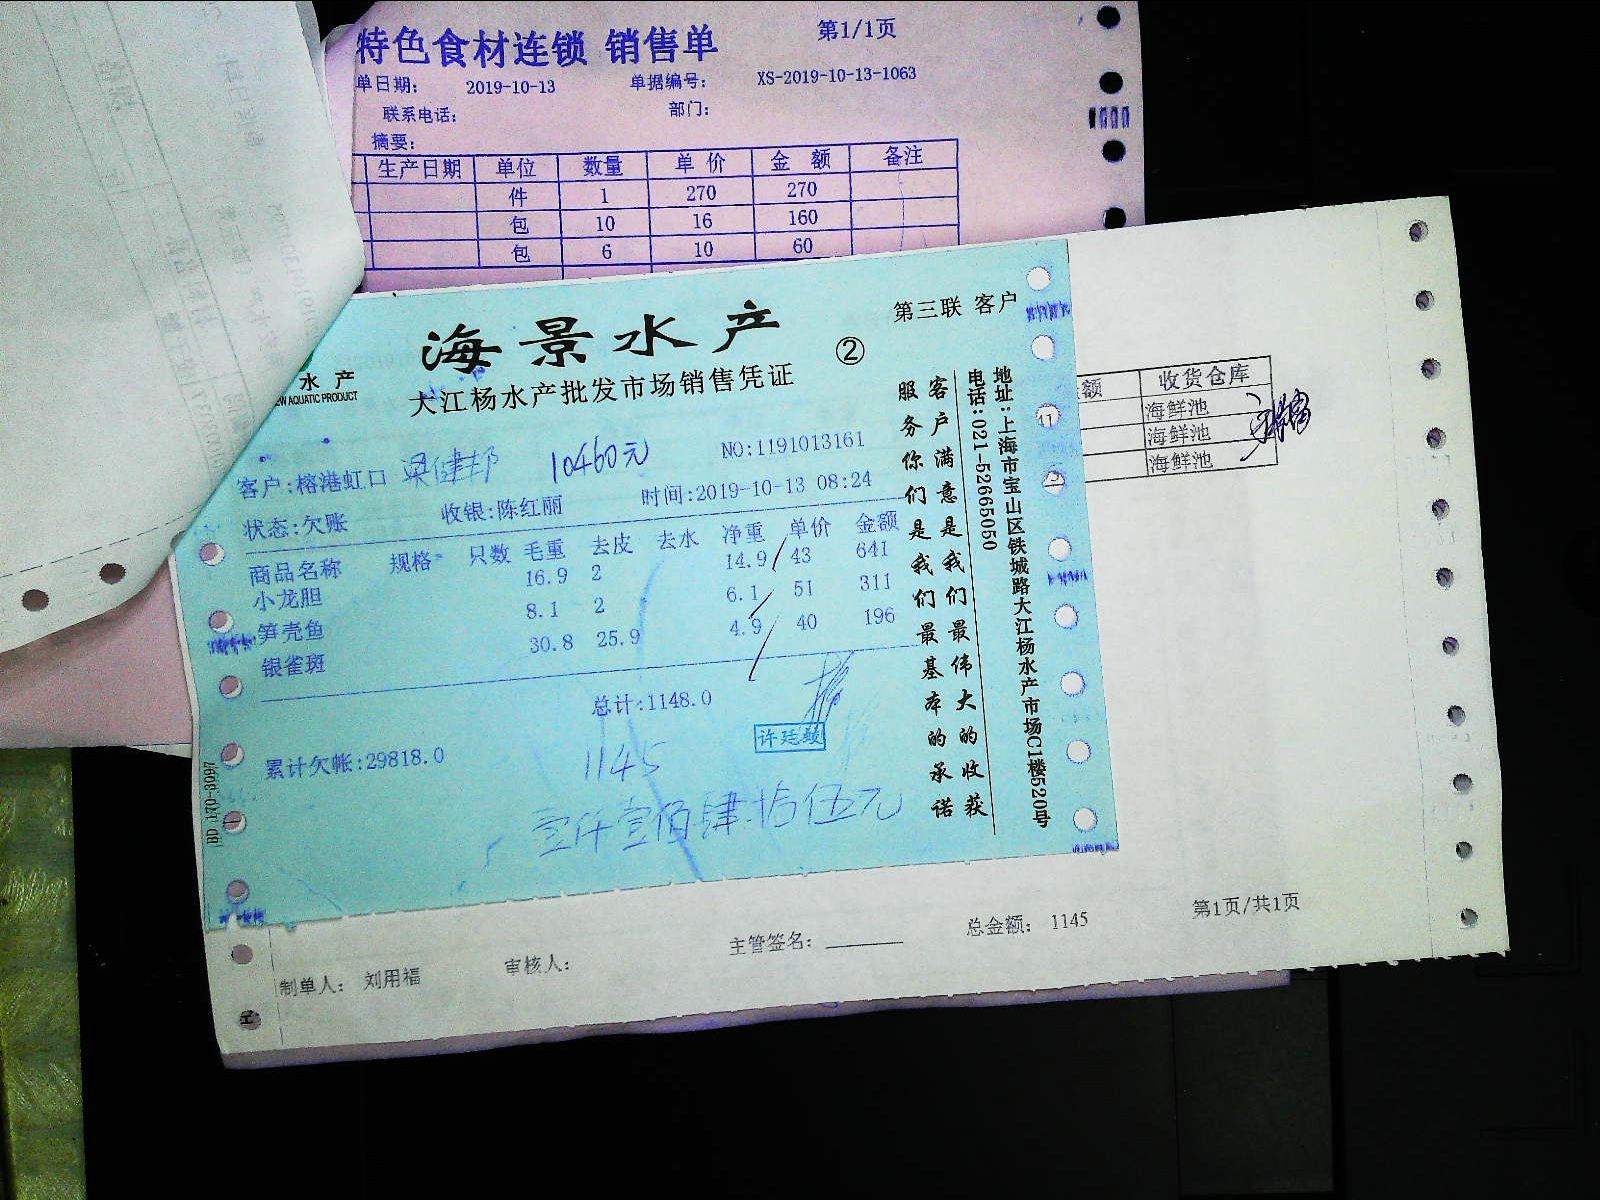 特色食材连锁 销售单
第1/1页
单日期: 2019-10-13 单据编号: XS-2019-10-13-1063
联系电话: 部门:
摘要:
生产日期 单位 数量 单价 金额 备注
件 1 270 270
包 10 16 160
包 6 10 60
海景水产
② 第三联 客户
水产
EW AQUATIC PRODUCT
大江杨水产批发市场销售凭证
客户:榕港虹口 梁健邦 10460元 NO:1191013161
状态:欠账 收银:陈红丽 时间:2019-10-13 08:24
商品名称 规格 只数 毛重 去皮 去水 净重 单价 金额
小龙胆 16.9 2 14.9 43 641
笋壳鱼 8.1 2 6.1 51 311
银雀斑 30.8 25.9 4.9 40 196
总计:1148.0
累计欠帐:29818.0
1145
壹仟壹佰肆拾伍元
客户满意是我们最伟大的收获
服务你们是我们最基本的承诺
地址:上海市宝山区铁城路大江杨水产市场C1楼520号
电话:021-52665050
BD 170-3097
额 收货仓库
海鲜池
海鲜池
海鲜池
制单人: 刘用福 审核人: 主管签名: 总金额: 1145 第1页/共1页